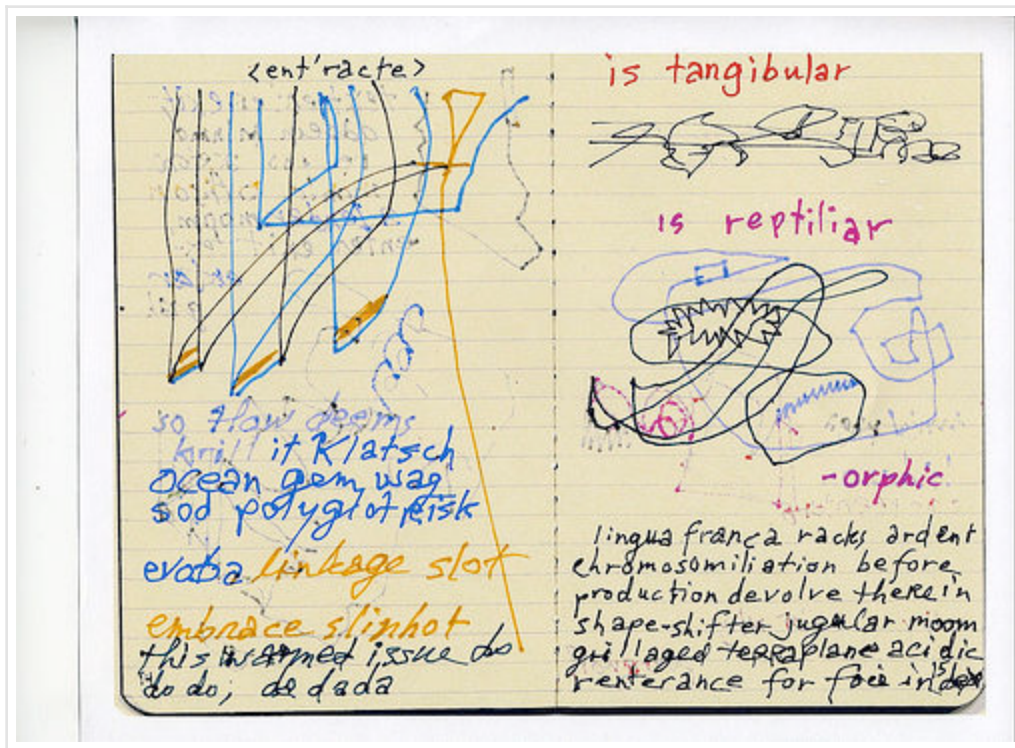 <ent'racte>
so flow deems
krill it Klatsch
ocean gem, wag
sod polyglot
evoba linkage slot
embrace slinhot
this warmed issue do
do do; do dada
is tangibular
is reptiliar
-orphic
lingua franca racks ardent
chromosomiliation before
production devolve therein
shape-shifter jugular moom
grillaged terraplane acidic
renterance for foci in